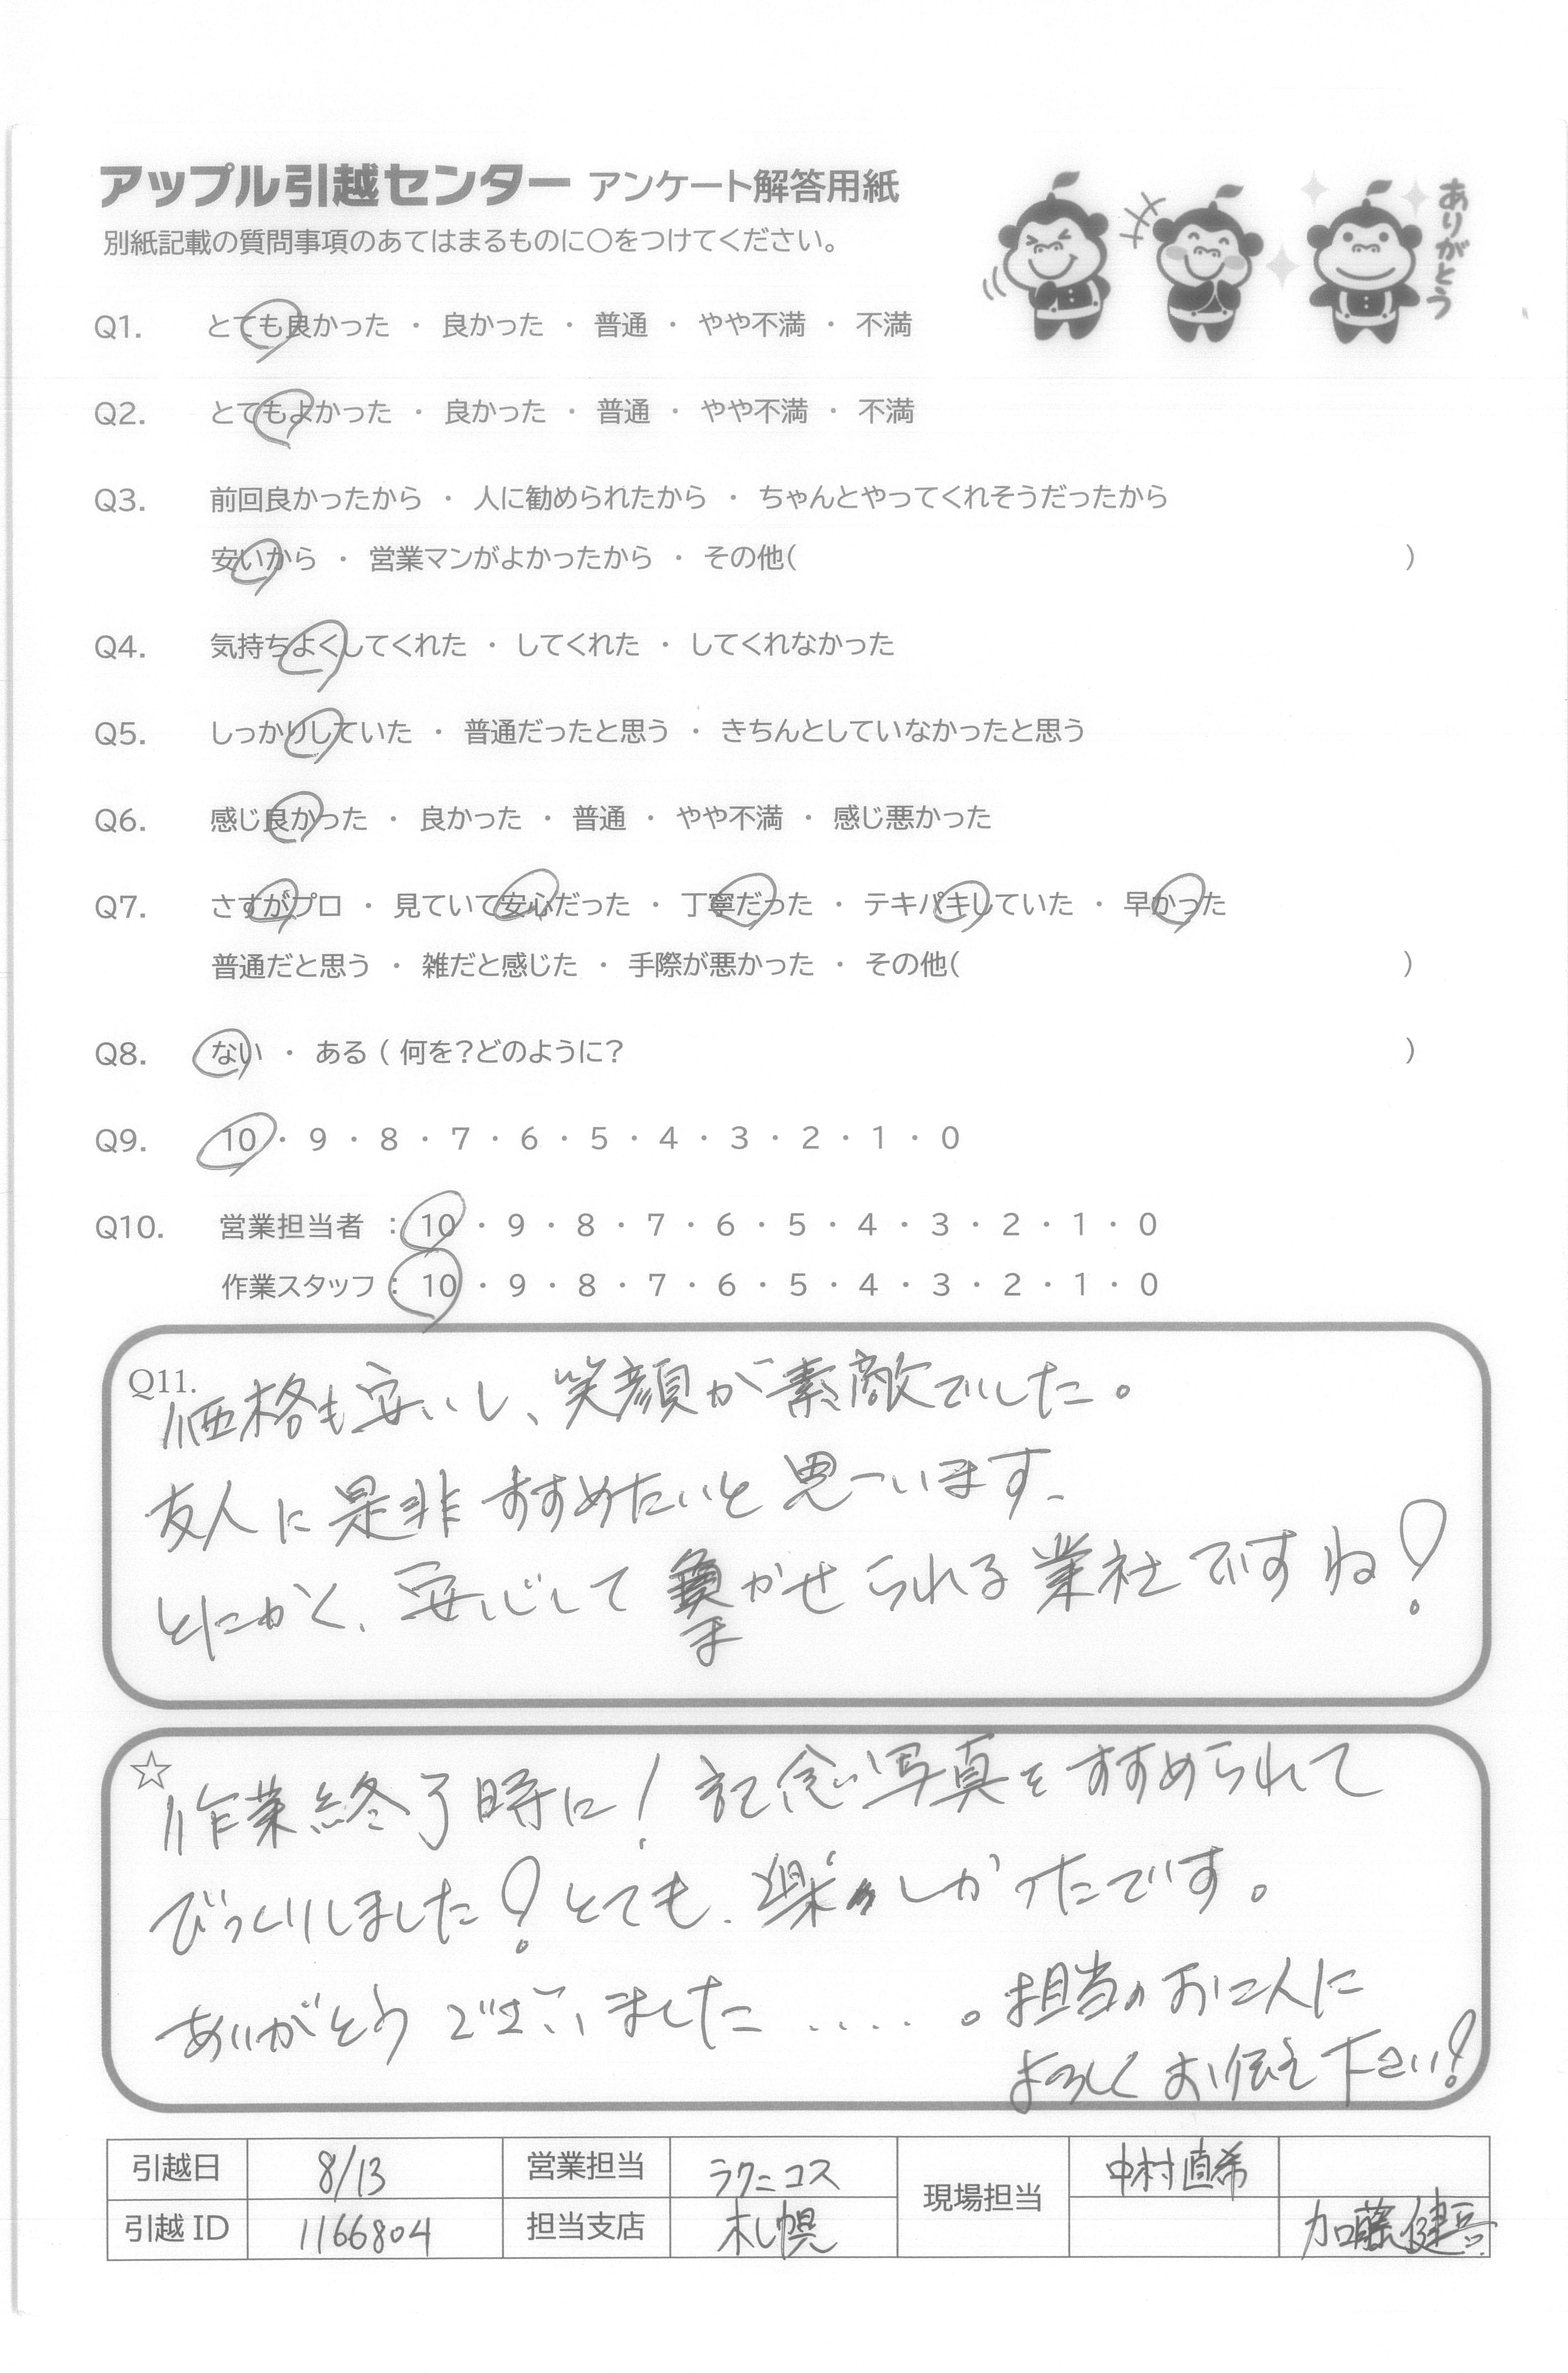 アップル引越センター アンケート解答用紙
別紙記載の質問事項のあてはまるものに○をつけてください。
ありがとう
Q1. とても良かった ・ 良かった ・ 普通 ・ やや不満 ・ 不満
Q2. とてもよかった ・ 良かった ・ 普通 ・ やや不満 ・ 不満
Q3. 前回良かったから ・ 人に勧められたから ・ ちゃんとやってくれそうだったから
安いから ・ 営業マンがよかったから ・ その他( )
Q4. 気持ちよくしてくれた ・ してくれた ・ してくれなかった
Q5. しっかりしていた ・ 普通だったと思う ・ きちんとしていなかったと思う
Q6. 感じ良かった ・ 良かった ・ 普通 ・ やや不満 ・ 感じ悪かった
Q7. さすがプロ ・ 見ていて安心だった ・ 丁寧だった ・ テキパキしていた ・ 早かった
普通だと思う ・ 雑だと感じた ・ 手際が悪かった ・ その他( )
Q8. ない ・ ある ( 何を?どのように? )
Q9. 10 ・ 9 ・ 8 ・ 7 ・ 6 ・ 5 ・ 4 ・ 3 ・ 2 ・ 1 ・ 0
Q10. 営業担当者 : 10 ・ 9 ・ 8 ・ 7 ・ 6 ・ 5 ・ 4 ・ 3 ・ 2 ・ 1 ・ 0
作業スタッフ : 10 ・ 9 ・ 8 ・ 7 ・ 6 ・ 5 ・ 4 ・ 3 ・ 2 ・ 1 ・ 0
Q11. 価格も安いし、笑顔が素敵でした。
友人に是非すすめたいと思います、
とにかく、安心してまかせられる業社ですね!
☆ 作業終了時に!記念写真をすすめられて
びっくりしました!とても、楽しかったです。
ありがとうございました.....。担当のお二人に
よろしくお伝え下さい!
引越日 8/13 営業担当 ラクニコス 現場担当 中村直希
引越ID 1166804 担当支店 札幌 加藤健吾